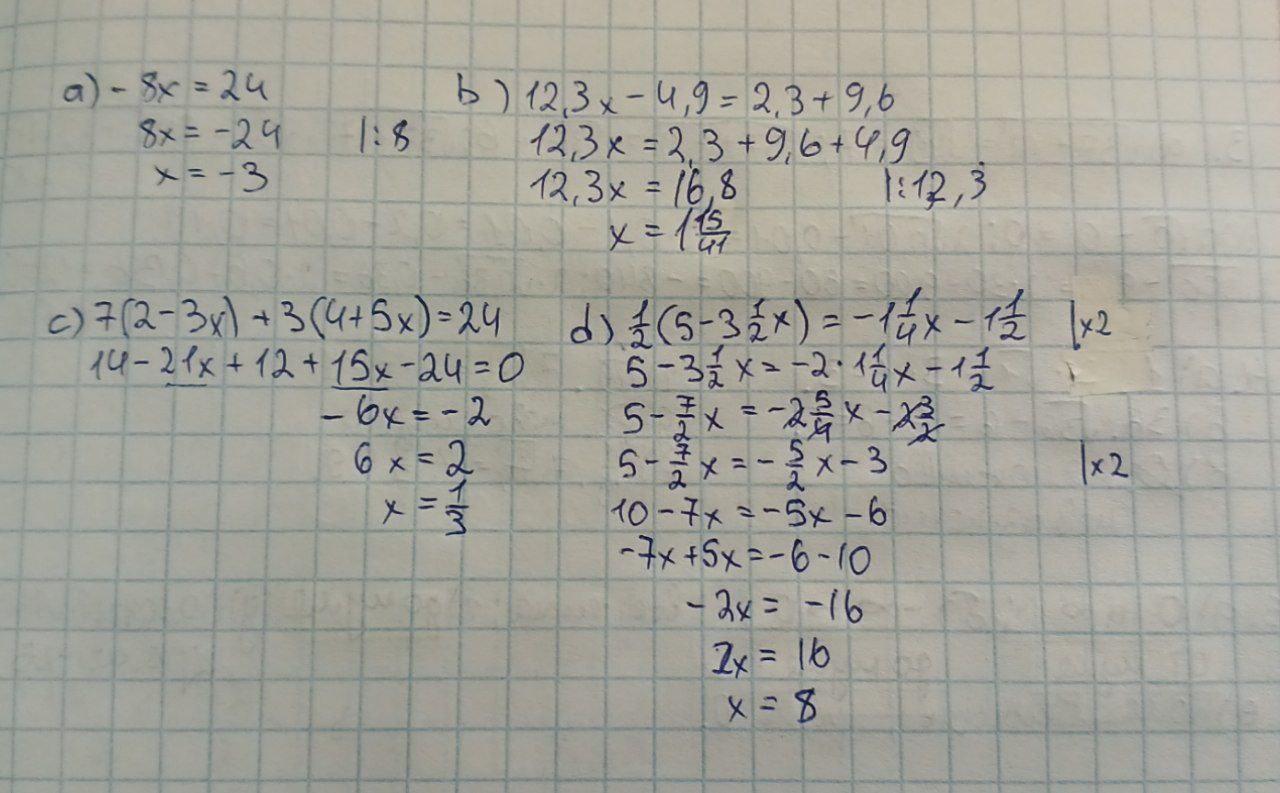 a) - 8x = 24
8x = -24 |:8
x = -3
b) 12,3x - 4,9 = 2,3 + 9,6
12,3x = 2,3 + 9,6 + 4,9
12,3x = 16,8 |:12,3
x = 1 15/41
c) 7(2 - 3x) + 3(4 + 5x) = 24
14 - 21x + 12 + 15x - 24 = 0
- 6x = -2
6x = 2
x = 1/3
d) 1/2 (5 - 3 1/2 x) = -1 1/4 x - 1 1/2 |x2
5 - 3 1/2 x = -2 · 1 1/4 x - 1 1/2
5 - 7/2 x = -2 5/4 x - 2 3/2
5 - 7/2 x = - 5/2 x - 3 |x2
10 - 7x = -5x - 6
-7x + 5x = -6 - 10
- 2x = -16
2x = 16
x = 8